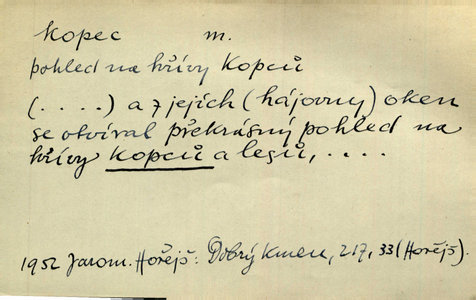 kopec m.
pohled na hřívy kopců
(....) a z jejich (hájovny) oken
se otvíral překrásný pohled na
hřívy kopců a lesů, ....
1952 Jarom. Hořejš: Dobrý kmen, 217, 33 (Hořejš).